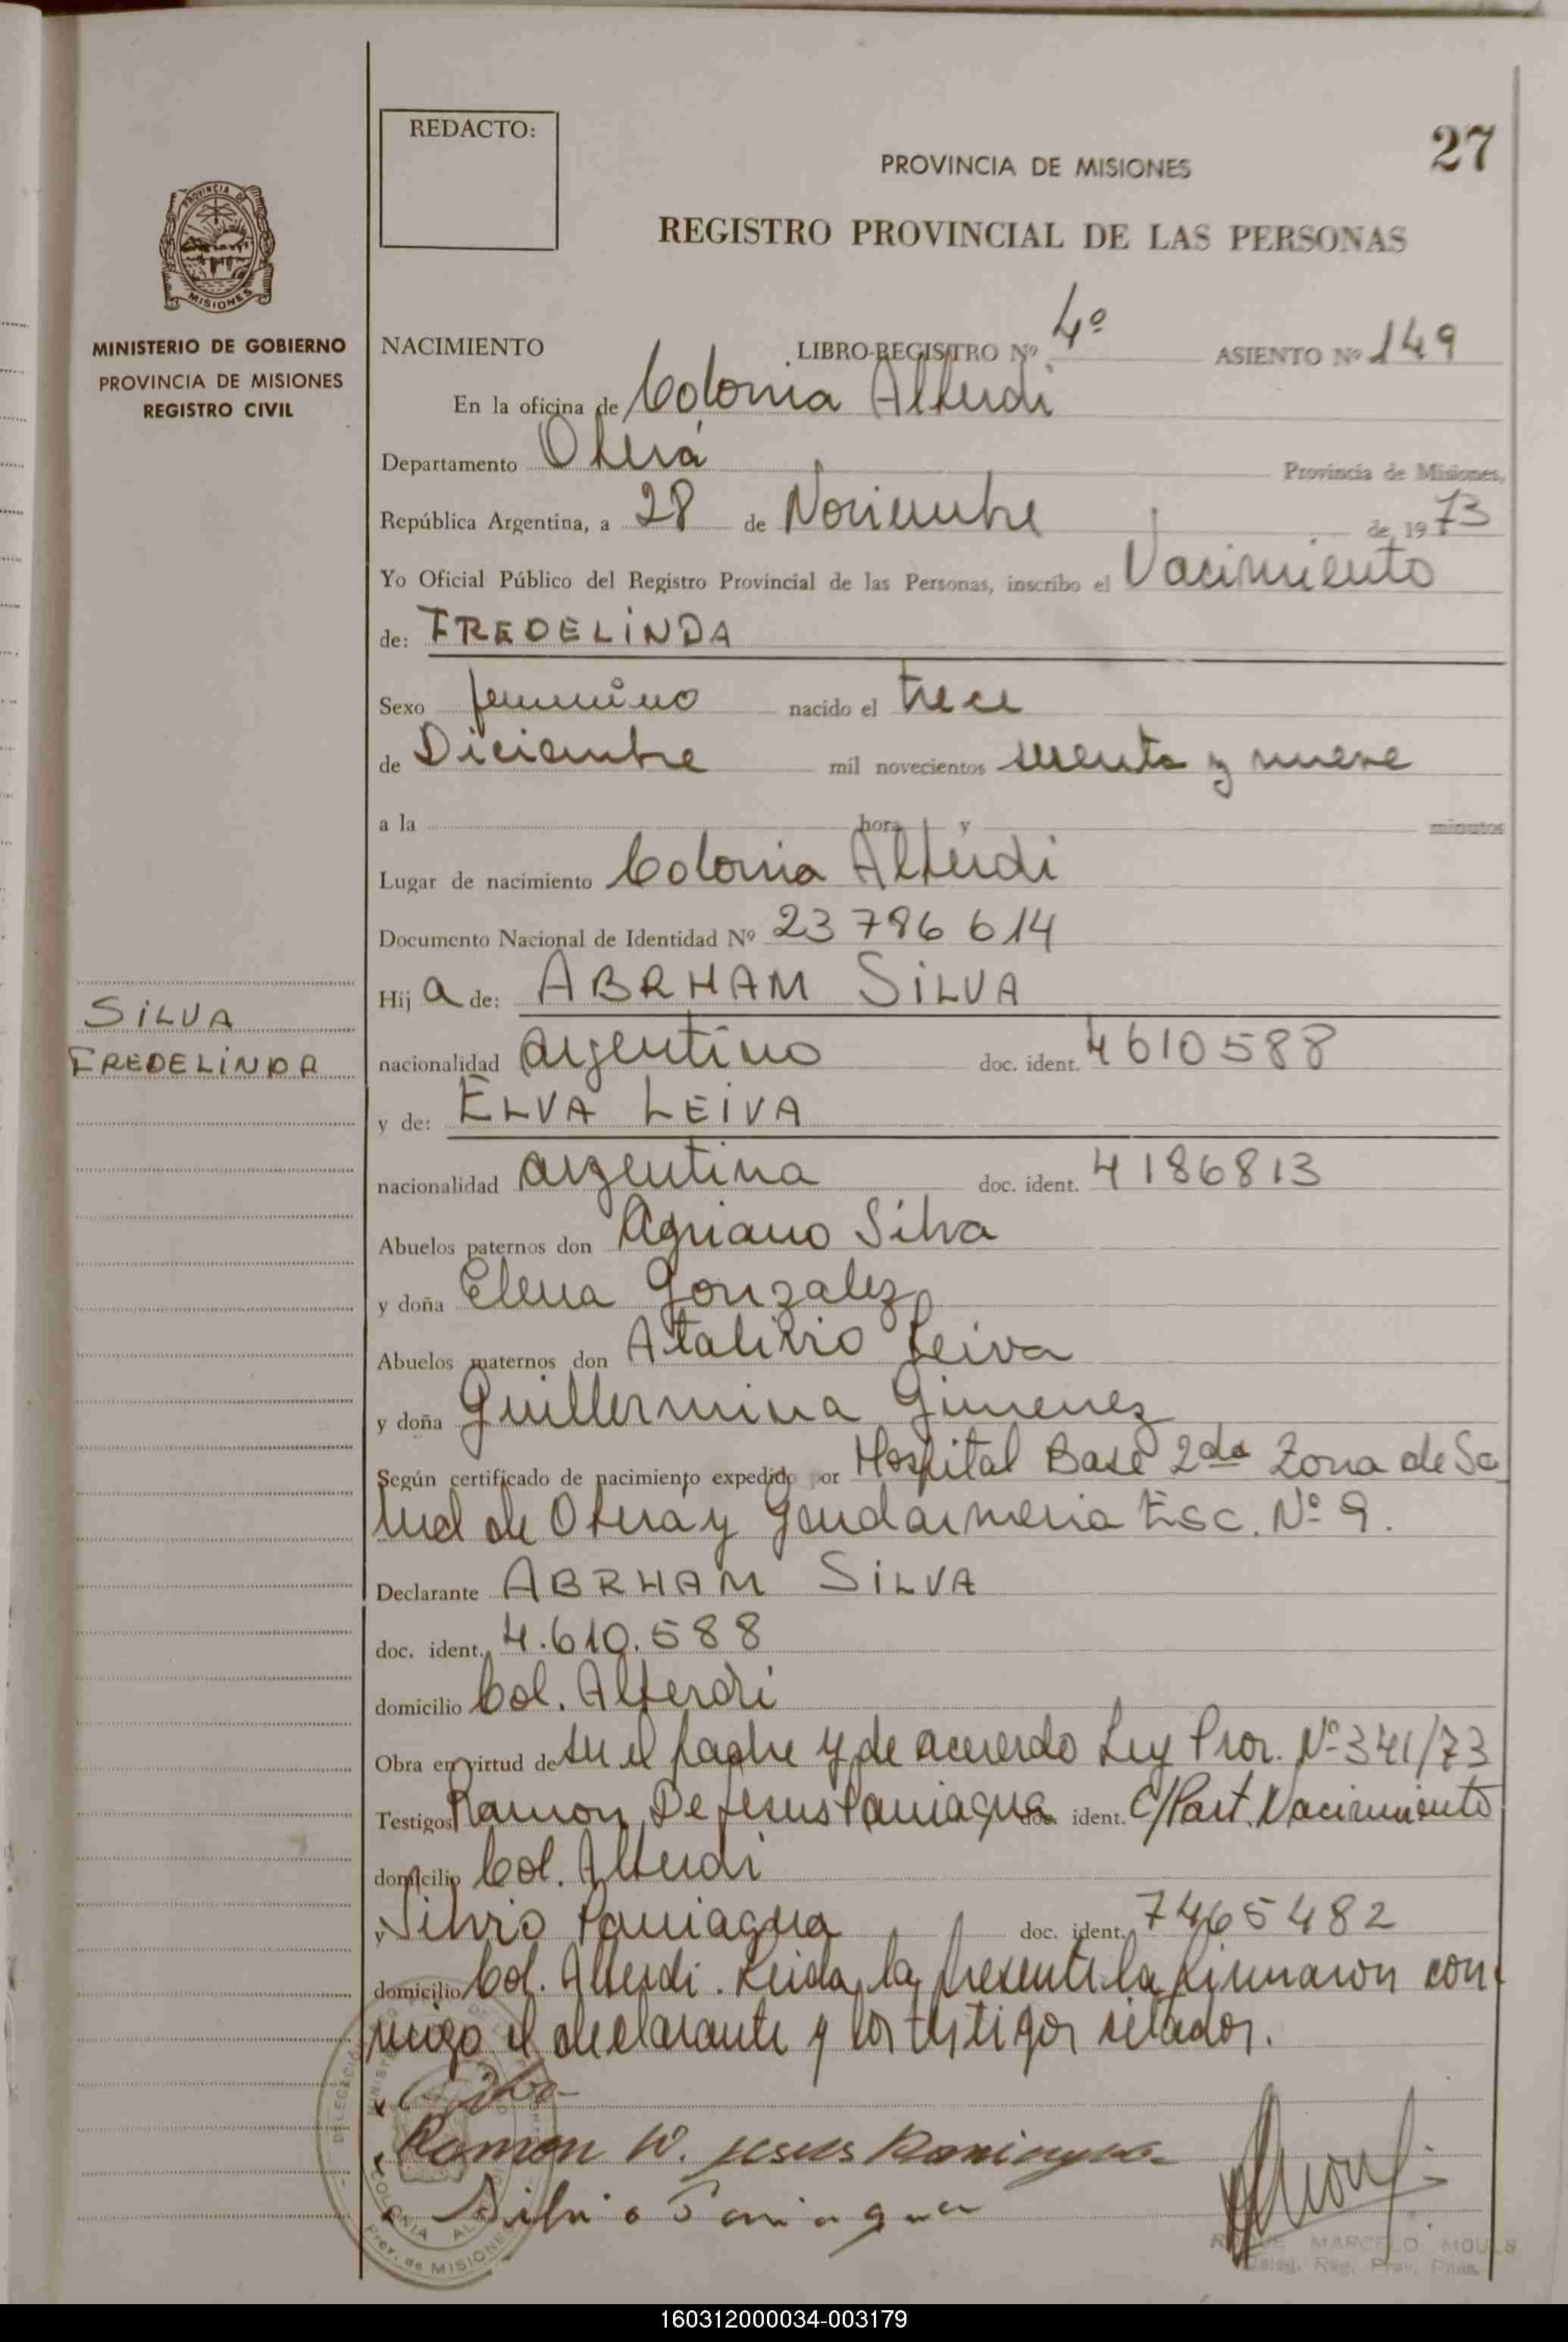 27
REDACTO:
PROVINCIA DE MISIONES
REGISTRO PROVINCIAL DE LAS PERSONAS
PROVINCIA DE
MISIONES
MINISTERIO DE GOBIERNO
PROVINCIA DE MISIONES
REGISTRO CIVIL
NACIMIENTO LIBRO-REGISTRO Nº 4º ASIENTO Nº 149
En la oficina de Colonia Alberdi
Departamento Oberá Provincia de Misiones,
República Argentina, a 28 de Noviembre de 1973
Yo Oficial Público del Registro Provincial de las Personas, inscribo el Nacimiento
de: FREDELINDA
Sexo femenino nacido el trece
de Diciembre mil novecientos sesenta y nueve
a la hora y minutos
Lugar de nacimiento Colonia Alberdi
Documento Nacional de Identidad Nº 23 786 614
Hija de: ABRHAM SILVA
SILVA
FREDELINDA
nacionalidad argentino doc. ident. 4610588
y de: ELVA LEIVA
nacionalidad argentina doc. ident. 4186813
Abuelos paternos don Agriano Silva
y doña Elena Gonzalez
Abuelos maternos don Atalivio Leiva
y doña Guillermina Gimenez
Según certificado de nacimiento expedido por Hospital Base 2da Zona de Sa
lud de Obera y Gendarmeria Esc. Nº 9.
Declarante ABRHAM SILVA
doc. ident. 4.610.588
domicilio Col. Alberdi
Obra en virtud de ser el padre y de acuerdo Ley Prov. Nº 341/73
Testigos Ramon De Jesus Paniagua doc. ident. C/Part. Nacimiento
domicilio Col. Alberdi
y Silvio Paniagua doc. ident. 7465482
domicilio Col. Alberdi. Leida la presente la firmaron con
migo el declarante y los testigos sitados.
Ramon D. Jesus Paniagua
Silvio Paniagua
COLONIA
Prov. de MISIONES
MARCELO
Deleg. Reg. Prov. Pnas.
160312000034-003179